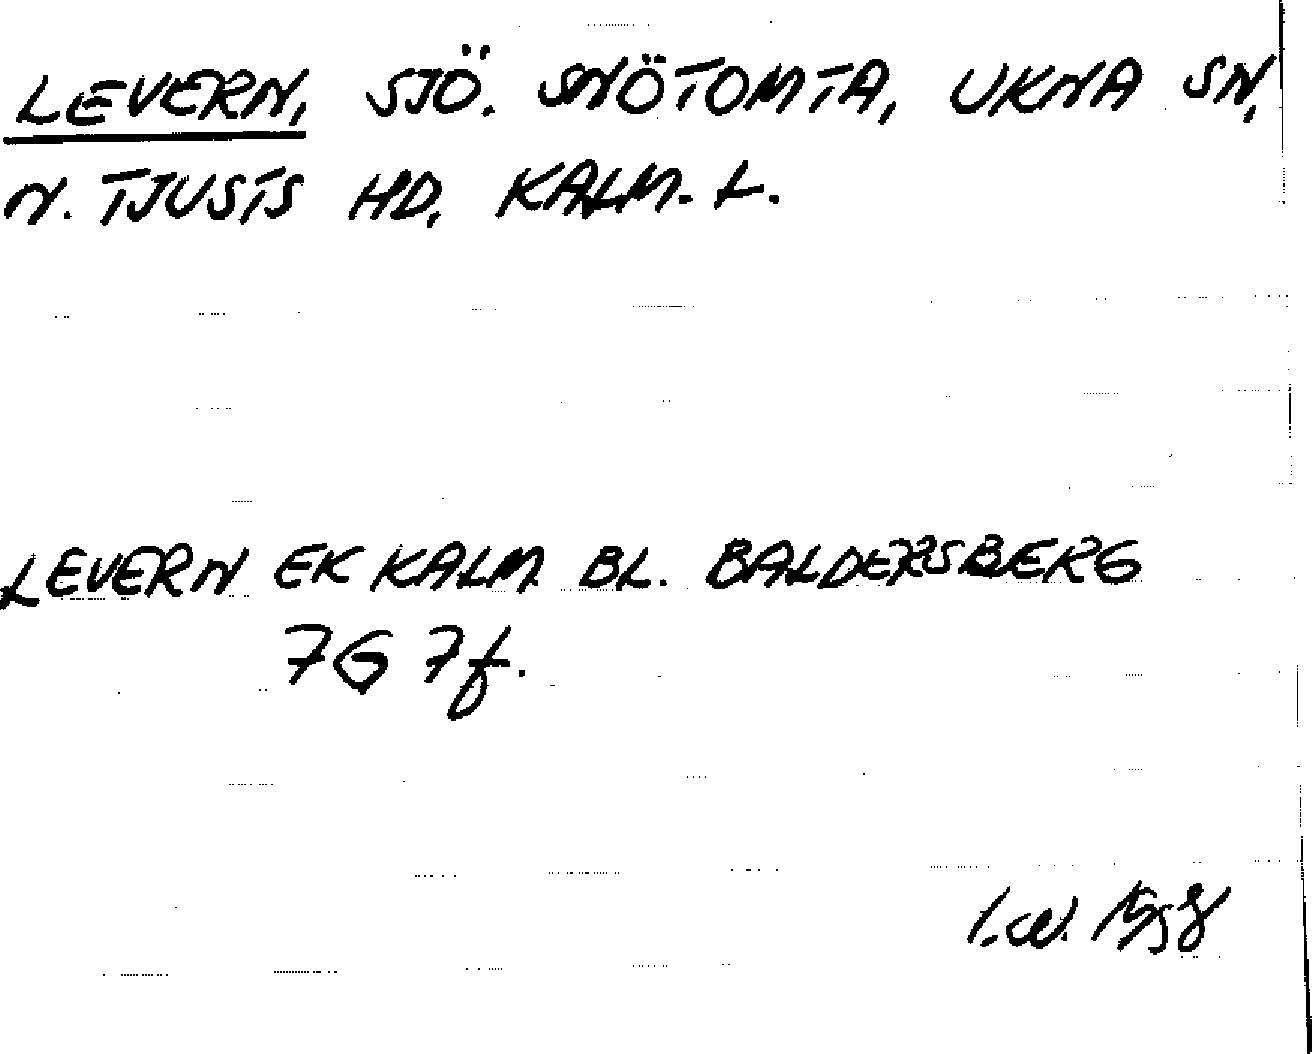 LEVERN, SJÖ. SNÖTOMTA, UKNA SN,
N. TJUSTS HD, KALM. L.
LEVERN EK KALM. BL. BALDERSBERG
7G 7f.